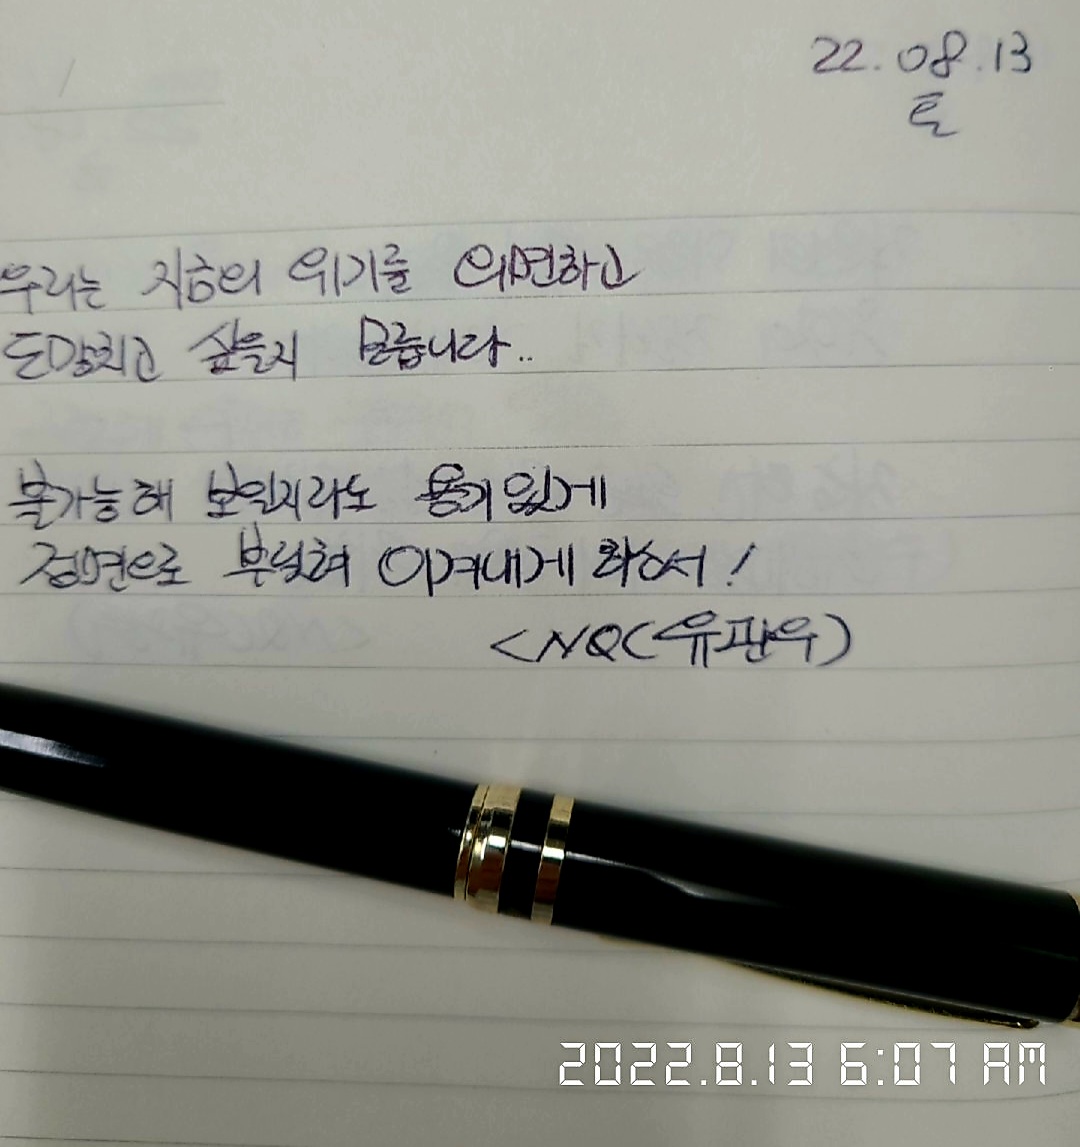 22.08.13
토
우리는 지금의 위기를 외면하고
도망치고 싶을지 모릅니다..
불가능해 보일지라도 용기있게
정면으로 부딪혀 이겨내게 하소서!
<NQ(유판우)
2022.8.13 6:07 AM